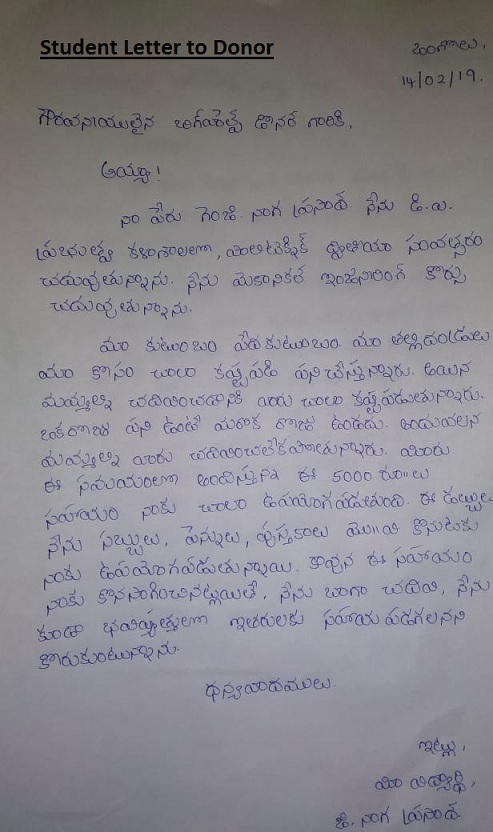 Student Letter to Donor
ఒంగోలు,
14/02/19.
గౌరవనీయులైన డోనర్ గారికి,
అయ్యా!
నా పేరు గెంజి. నాగ ప్రసాద్. నేను డి.ఎ.
ప్రభుత్వ కళాశాలలో, పాలిటెక్నిక్ ద్వితీయ సంవత్సరం
చదువుతున్నాను. నేను మెకానికల్ ఇంజనీరింగ్ కోర్సు
చదువుతున్నాను.
మా కుటుంబం పేద కుటుంబం. మా తల్లిదండ్రులు
మా కోసం చాలా కష్టపడి పనిచేస్తున్నారు. అయిన
మమ్మల్ని చదివించడానికి వారు చాలా కష్టపడుతున్నారు.
ఒకరోజు పని ఉంటే మరొక రోజు ఉండదు. అందువలన
మమ్మల్ని వారు చదివించలేకపోతున్నారు. మీరు
ఈ సమయంలో అందిస్తున్న ఈ 5000 రూ॥లు
సహాయం నాకు చాలా ఉపయోగపడుతుంది. ఈ డబ్బులు
నేను సబ్బులు, పెన్నులు, పుస్తకాలు మొ॥వి కొనుటకు
నాకు ఉపయోగపడుతున్నాయి. కావున ఈ సహాయం
నాకు కొనసాగించినట్లయితే, నేను బాగా చదివి, నేను
కూడా భవిష్యత్తులో ఇతరులకు సహాయ పడగలనని
కోరుకుంటున్నాను.
ధన్యవాదములు.
ఇట్లు,
మీ విద్యార్థి,
జి. నాగ ప్రసాద్.